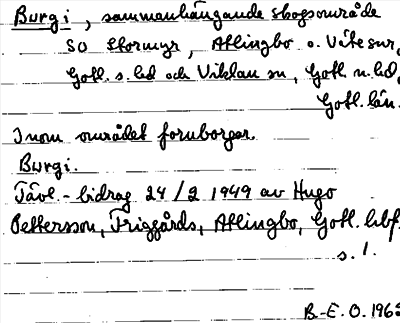 Burgi, sammanhängande skogsområde
SO Stormyr, Atlingbo o. Väte snr,
Gotl. s. hd och Viklau sn, Gotl. n. hd,
Gotl. län.
Inom området fornborgen
Burgi.
Tävl.-bidrag 24/2 1949 av Hugo
Pettersson, Friggårds, Atlingbo, Gotl. hbf.
s. 1.
B.-E. O. 1963